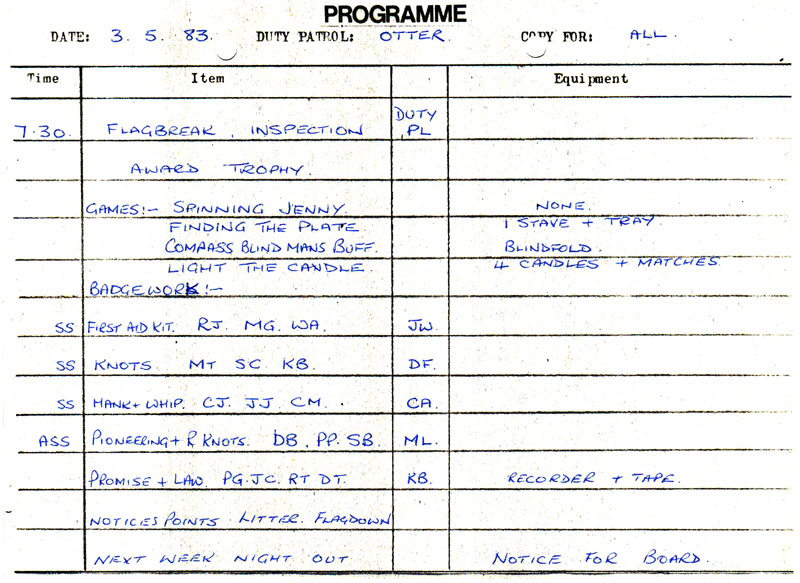 PROGRAMME
DATE: 3. 5. 83. DUTY PATROL: OTTER. COPY FOR: ALL.
Time Item Equipment
7.30. FLAGBREAK, INSPECTION DUTY PL
AWARD TROPHY.
GAMES:- SPINNING JENNY. NONE.
FINDING THE PLATE. 1 STAVE + TRAY.
COMPASS BLIND MANS BUFF. BLINDFOLD.
LIGHT THE CANDLE. 4 CANDLES + MATCHES.
BADGEWORK:-
SS FIRST AID KIT. RJ. MG. WA. JW.
SS KNOTS. MT SC KB. DF.
SS HANK + WHIP. CJ. JJ. CM. CA.
ASS PIONEERING + R KNOTS. DB. PP. SB. ML.
PROMISE + LAW. PG. JC. RT DT. KB. RECORDER + TAPE.
NOTICIES POINTS LITTER. FLAGDOWN
NEXT WEEK NIGHT OUT NOTICE FOR BOARD.